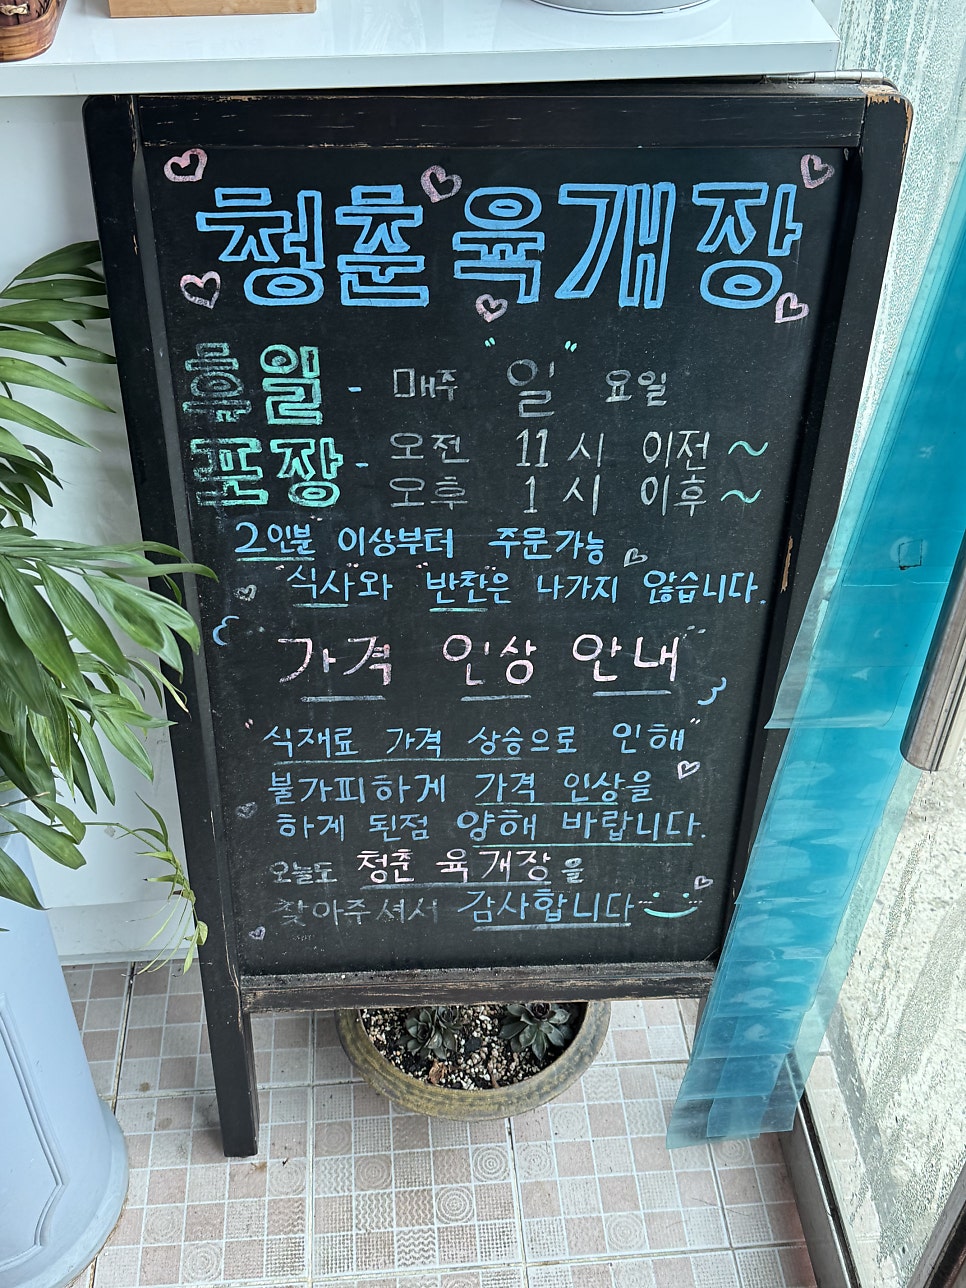 청춘육개장
휴일 - 매주 "일" 요일
포장 - 오전 11시 이전 ~
오후 1시 이후 ~
2인분 이상부터 주문가능
"식사"와 "반찬"은 나가지 않습니다.
가격 인상 안내
"식재료 가격 상승으로 인해"
불가피하게 가격 인상을
하게 된점 양해 바랍니다.
오늘도 청춘 육개장을
찾아주셔서 감사합니다